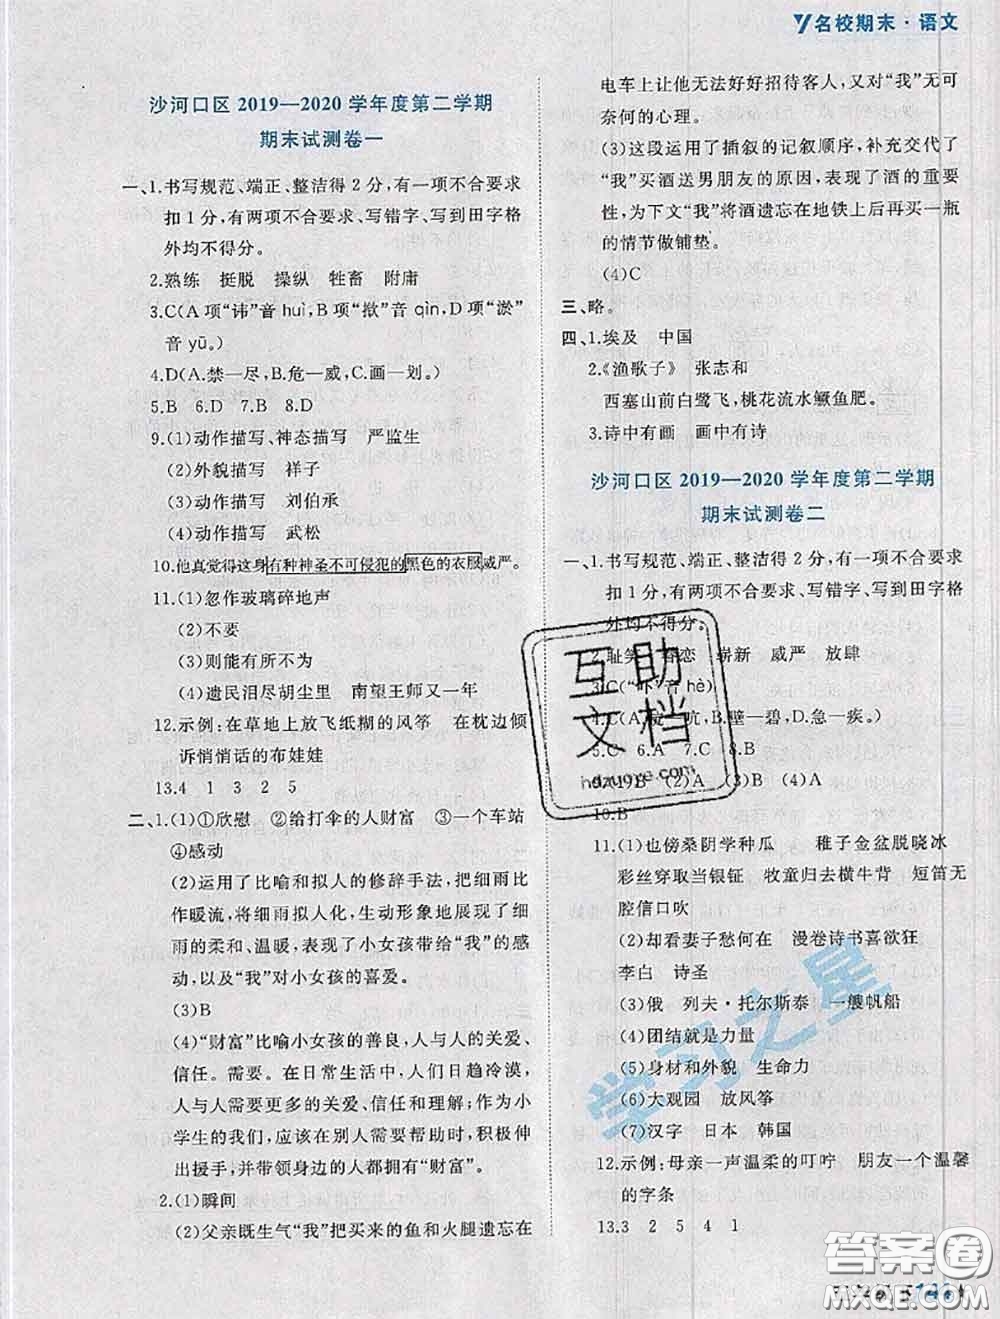 名校期末·语文
沙河口区 2019—2020 学年度第二学期
期末试测卷一
一、1.书写规范、端正、整洁得 2 分,有一项不合要求
扣 1 分,有两项不合要求、写错字、写到田字格
外均不得分。
2.熟练 挺脱 操纵 牲畜 附庸
3.C(A 项“讳”音 huì,B 项“揿”音 qìn,D 项“淤”
音 yū。)
4.D(A.禁—尽,B.危—威,C.画—划。)
5.B 6.D 7.B 8.D
9.(1)动作描写、神态描写 严监生
(2)外貌描写 祥子
(3)动作描写 刘伯承
(4)动作描写 武松
10.他真觉得这身有种神圣不可侵犯的黑色的衣服威严。
11.(1)忽作玻璃碎地声
(2)不要
(3)则能有所不为
(4)遗民泪尽胡尘里 南望王师又一年
12.示例:在草地上放飞纸糊的风筝 在枕边倾
诉悄悄话的布娃娃
13.4 1 3 2 5
二、1.(1)①欣慰 ②给打伞的人财富 ③一个车站
④感动
(2)运用了比喻和拟人的修辞手法,把细雨比
作暖流,将细雨拟人化,生动形象地展现了细
雨的柔和、温暖,表现了小女孩带给“我”的感
动,以及“我”对小女孩的喜爱。
(3)B
(4)“财富”比喻小女孩的善良,人与人的关爱、
信任。需要。在日常生活中,人们日趋冷漠,
人与人需要更多的关爱、信任和理解;作为小
学生的我们,应该在别人需要帮助时,积极伸
出援手,并带领身边的人都拥有“财富”。
2.(1)瞬间
(2)父亲既生气“我”把买来的鱼和火腿遗忘在
电车上让他无法好好招待客人,又对“我”无可
奈何的心理。
(3)这段运用了插叙的记叙顺序,补充交代了
“我”买酒送男朋友的原因,表现了酒的重要
性,为下文“我”将酒遗忘在地铁上后再买一瓶
的情节做铺垫。
(4)C
三、略。
四、1.埃及 中国
2.《渔歌子》 张志和
西塞山前白鹭飞,桃花流水鳜鱼肥。
3.诗中有画 画中有诗
沙河口区 2019—2020 学年度第二学期
期末试测卷二
一、1.书写规范、端正、整洁得 2 分,有一项不合要求
扣 1 分,有两项不合要求、写错字、写到田字格
外均不得分。
2.耻笑 眷恋 崭新 威严 放肆
3.C(“吓”音 hè)
4.C(A. — 坑,B.壁—碧,D.急—疾。)
5.C 6.A 7.C 8.B
9.(1)B (2)A (3)B (4)A
10.B
11.(1)也傍桑阴学种瓜 稚子金盆脱晓冰
彩丝穿取当银钲 牧童归去横牛背 短笛无
腔信口吹
(2)却看妻子愁何在 漫卷诗书喜欲狂
李白 诗圣
(3)俄 列夫·托尔斯泰 一艘帆船
(4)团结就是力量
(5)身材和外貌 生命力
(6)大观园 放风筝
(7)汉字 日本 韩国
12.示例:母亲一声温柔的叮咛 朋友一个温馨
的字条
13.3 2 5 4 1
互助
文档
hdzuoye.com
学习之星
答案圈
MXQE.COM